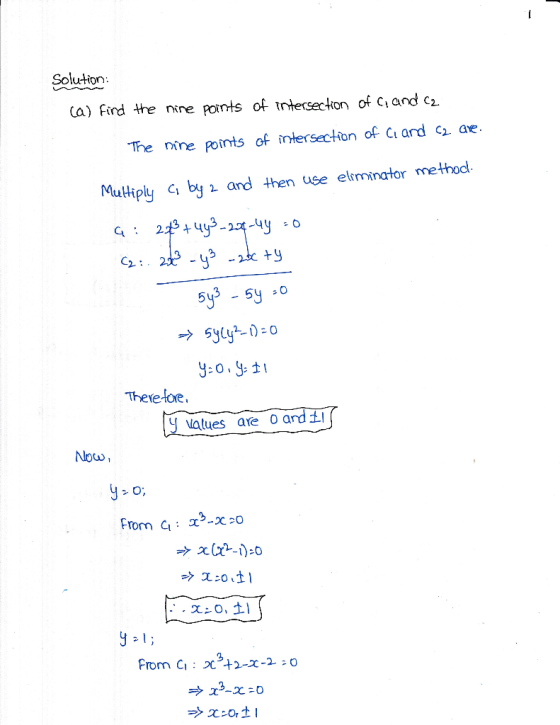 1
Solution:
(a) Find the nine points of intersection of C₁ and C₂
The nine points of intersection of C₁ and C₂ are.
Multiply C₁ by 2 and then use eliminator method.
C₁ : 2x³ + 4y³ - 2x - 4y = 0
C₂ : 2x³ - y³ - 2x + y
5y³ - 5y = 0
⇒ 5y(y²-1) = 0
y = 0, y = ±1
Therefore,
y values are 0 and ±1
Now,
y = 0;
From C₁ : x³ - x = 0
⇒ x(x²-1) = 0
⇒ x = 0, ±1
∴ x = 0, ±1
y = 1;
From C₁ : x³ + 2 - x - 2 = 0
⇒ x³ - x = 0
⇒ x = 0, ±1